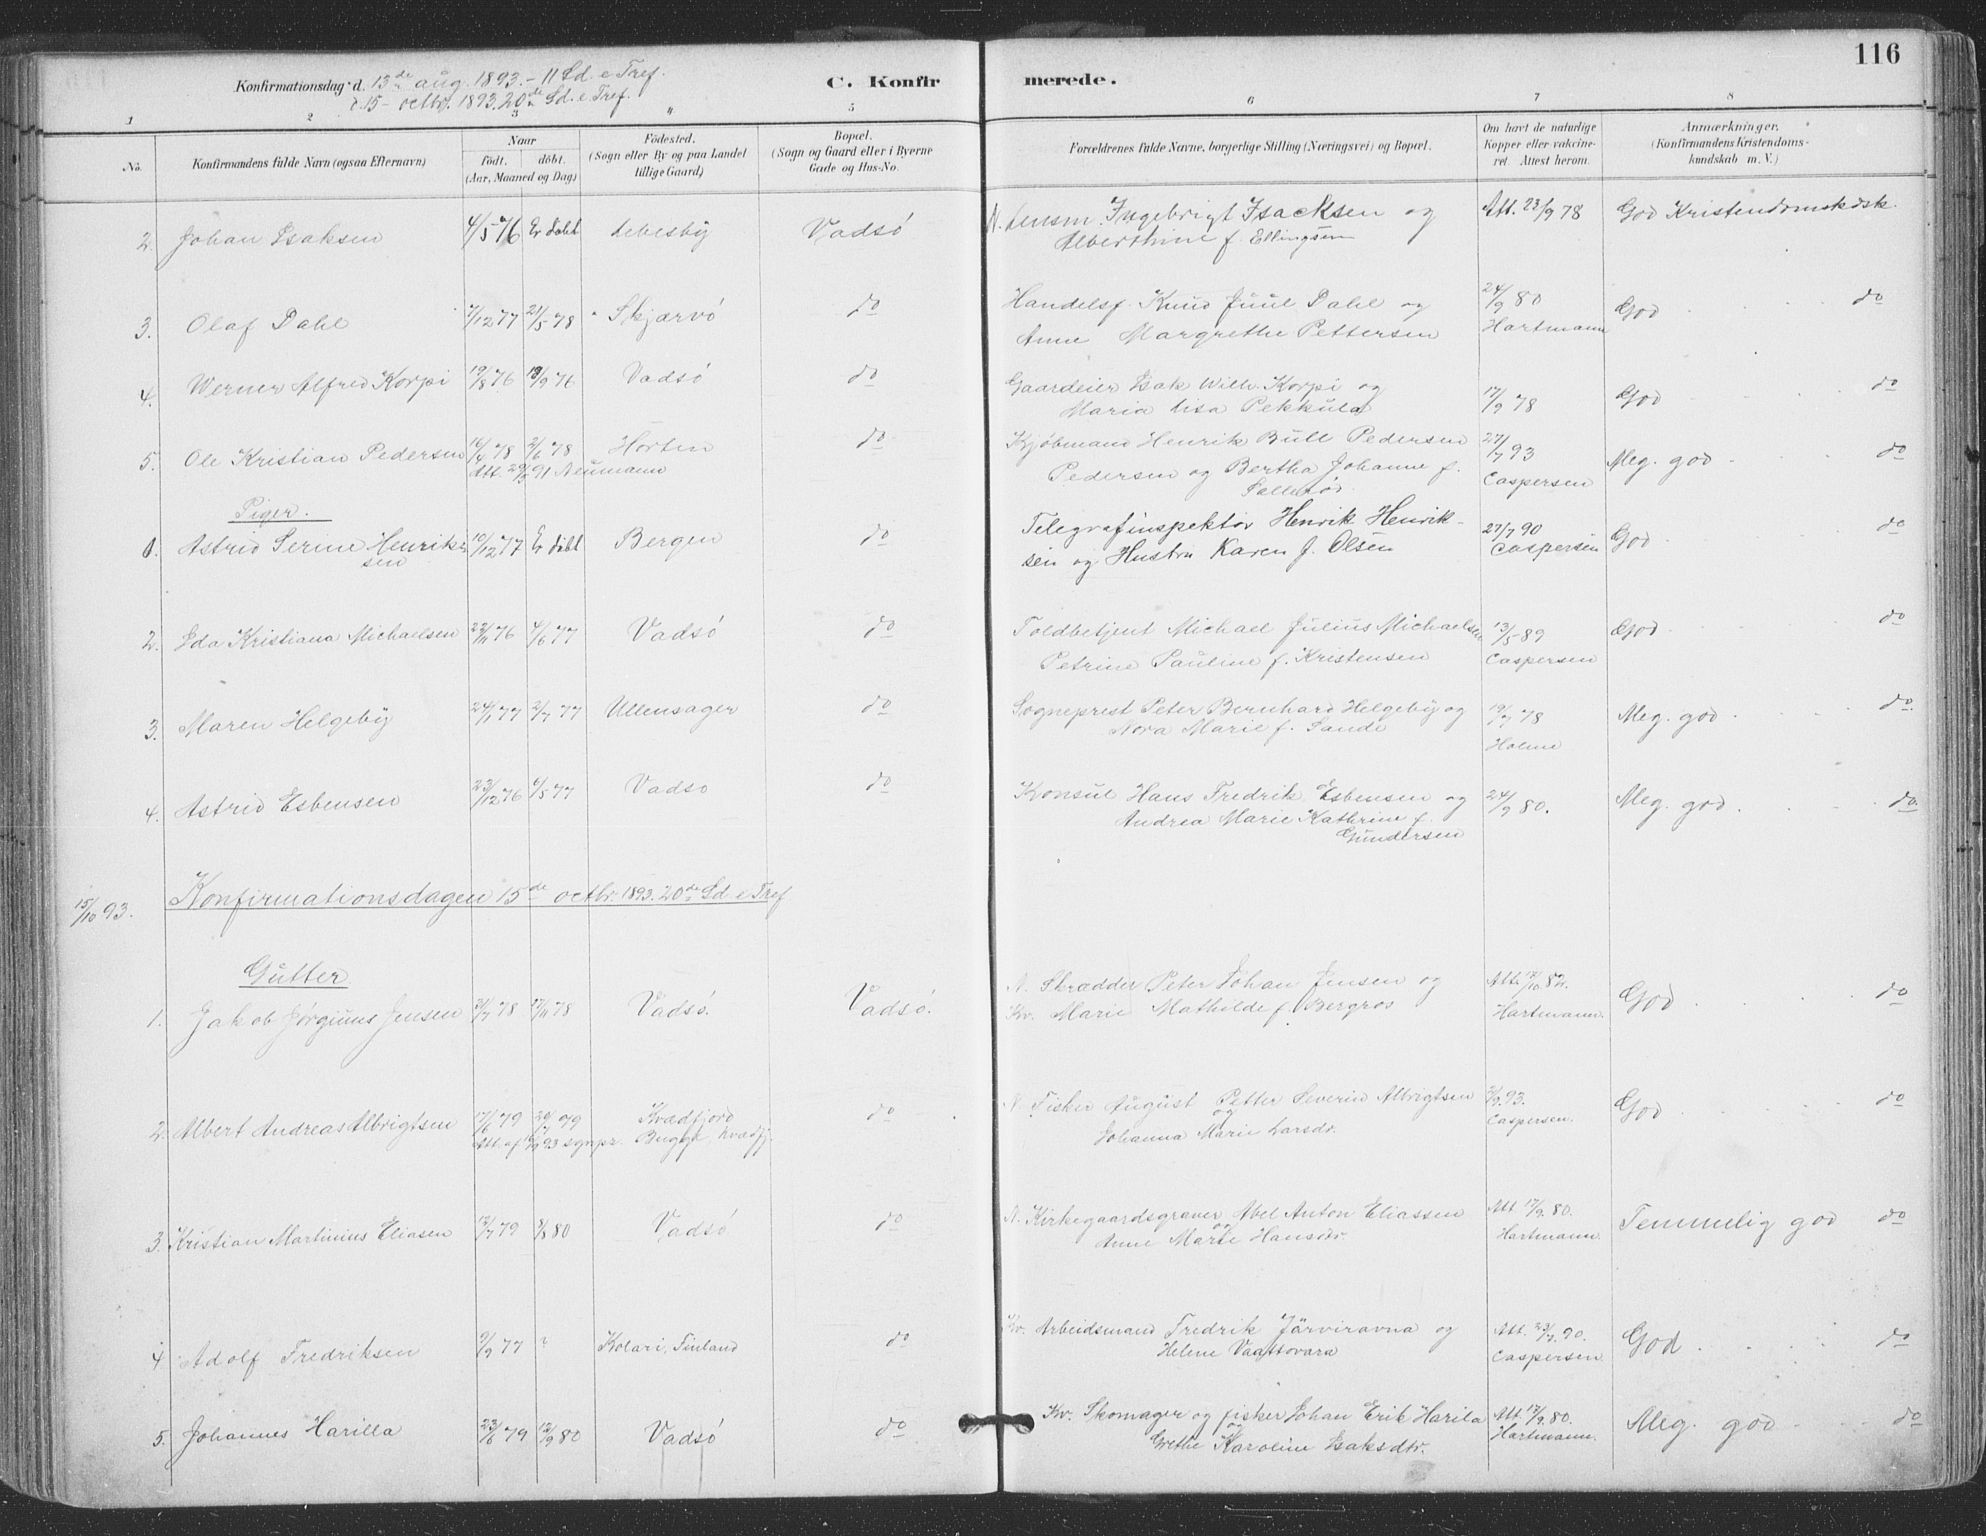 116
Konfirmationsdag d. 13de aug. 1893. - 11 Sd. e. Tref.
d. 15 - octbr. 1893. 20de Sd. e. Tref.
C. Konfirmerede.
1 2 3 4 5 6 7 8
No. Konfirmandens fulde Navn (ogsaa Efternavn) Naar født. døbt. (Aar, Maaned og Dag) Fødested. (Sogn eller By og paa Landet tillige Gaard) Bopæl. (Sogn og Gaard eller i Byerne Gade og Hus-No. Forældrenes fulde Navne, borgerlige Stilling (Næringsvei) og Bopæl. Om havt de naturlige Kopper eller vakcineret. Attest herom. Anmærkninger. (Konfirmandens Kristendomskundskab m. V.)
2. Johan Isaksen 4/5 76 Er døbt Lebesby Vadsö N. Lensm. Ingebrigt Isacksen og Att. 23/9 78 God Kristendomskdsk.
Alberthine f. Ellingsen
3. Olaf Dahl 7/12 77 21/5 78 Skjærvö do Handelsf. Knud Juul Dahl og 24/9 80 God do
Anne Margrethe Pettersen Hartmann
4. Werner Alfred Korpi 19/8 76 18/9 76 Vadsö do Gaardeier Isak Wilh. Korpi og 17/9 78 God do
Maria Lisa Pekkula
5. Ole Kristian Pedersen 16/4 78 2/6 78 Horten do Kjøbmand Henrik Bull Pedersen 27/7 93 Meg. god do
Att. 29/5 91 Neumann Pedersen og Bertha Johanne f. Caspersen
Piger.
1. Astrid Serine Henriksen 10/12 77 Er døbt Bergen do Telegrafinspektör Henrik Henrik- 27/7 90 God do
sen og Hustru Karen f. Olsen Caspersen
2. Ida Kristiana Michaelsen 22/11 76 4/6 77 Vadsö do Toldbetjent Michael Julius Michaelsen 13/5 89 God do
Petrine Pauline f. Kristensen Caspersen
3. Maren Helgeby 24/1 77 2/7 77 Ullensager do Sogneprest Peter Bernhard Helgeby og 19/7 78 Meg. god do.
Nora Marie f. Sande Holme
4. Astrid Esbensen 23/12 76 6/5 77 Vadsö do Konsul Hans Fredrik Esbensen og 24/9 80. Meg. god do.
Andrea Marie Kathrine f.
Gundersen
15/10 93. Konfirmationsdagen 15de octbr. 1893. 20de Sd e Tref
Gutter
1. Jakob Jørginus Jensen 31/7 78 17/11 78 Vadsö. Vadsö. N. Skrædder Peter Johan Jensen og Att. 17/10 82. God do
Kv. Marie Mathilde f. Bergros Hartmann.
2. Albert Andreas Albrigtsen 17/6 79 20/7 79 Kvædfjord do N. Fisker August Petter Severin Albrigtsen 2/9 93. God do
Att. af 93 sgnpr. Bugge, Kvædfj. og Johanna Marie Larsdr. Caspersen.
3. Kristian Martinius Eliasen 12/7 79 8/8 80 Vadsö do N. Kirkegaardsgraver Abel Anton Eliassen Att. 17/9. 80. Temmelig god do
og Anne Marie Hansdr. Hartmann.
4 Adolf Fredriksen 9/9 77 ? Kolari, Finland do Kv. Arbeidsmand Fredrik Järviravna og Att. 23/7. 90. God do
Helene Vaattovara Caspersen.
5. Johannes Harilla 23/6 79 12/9 80 Vadsö do Kv. Skomager og fisker Johan Erik Harila Att. 17/9. 80. Meg. god do
og Grethe Karoline Isaksdtr. Hartmann.